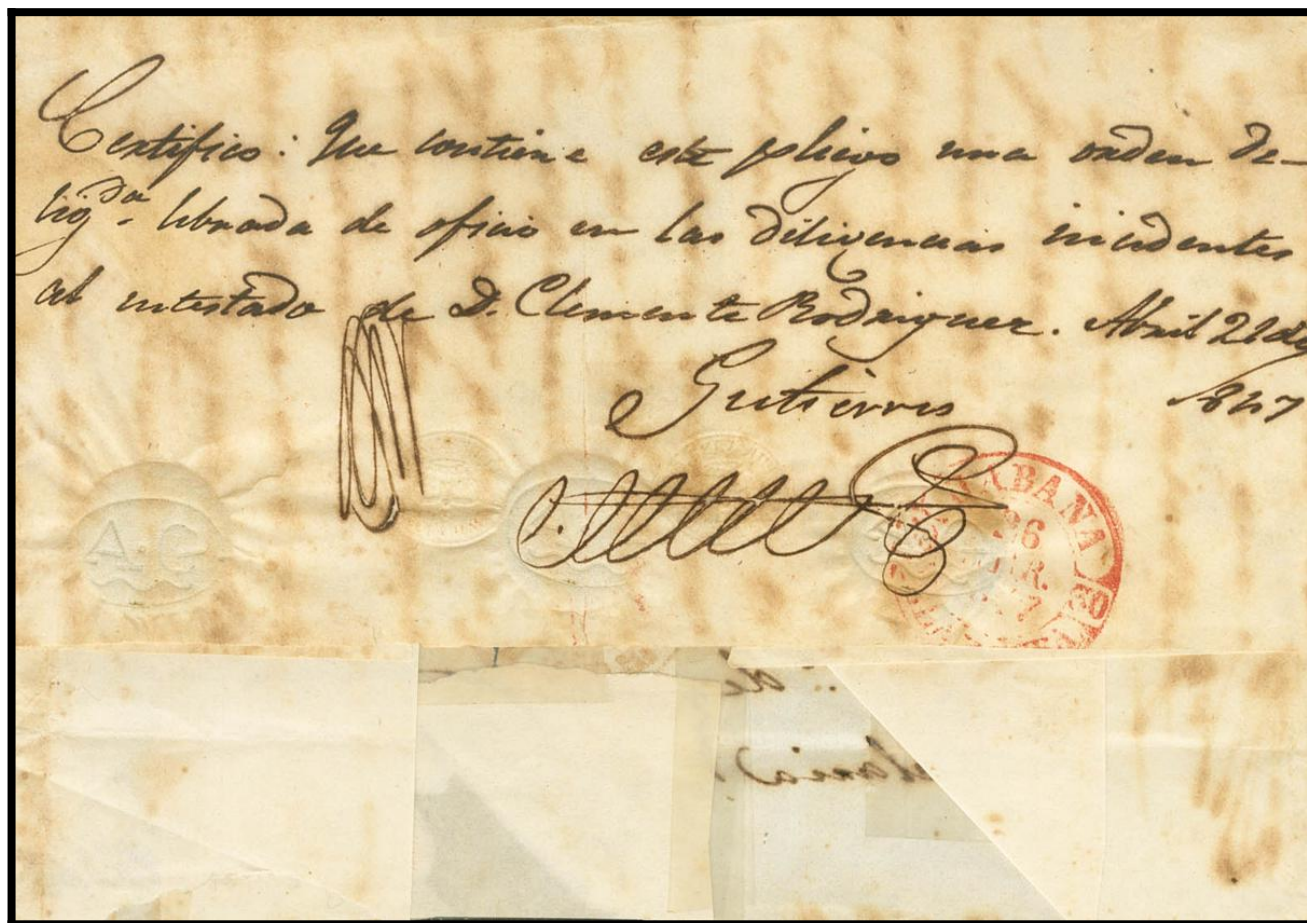 Certifico: Que contiene este pliego una orden de-
lig.da librada de oficio en las diligencias incidentes
al intestado de D. Clemente Rodriguez. Abril 21 de
Gutierres 1847
A.G
HABANA
26
ABR.